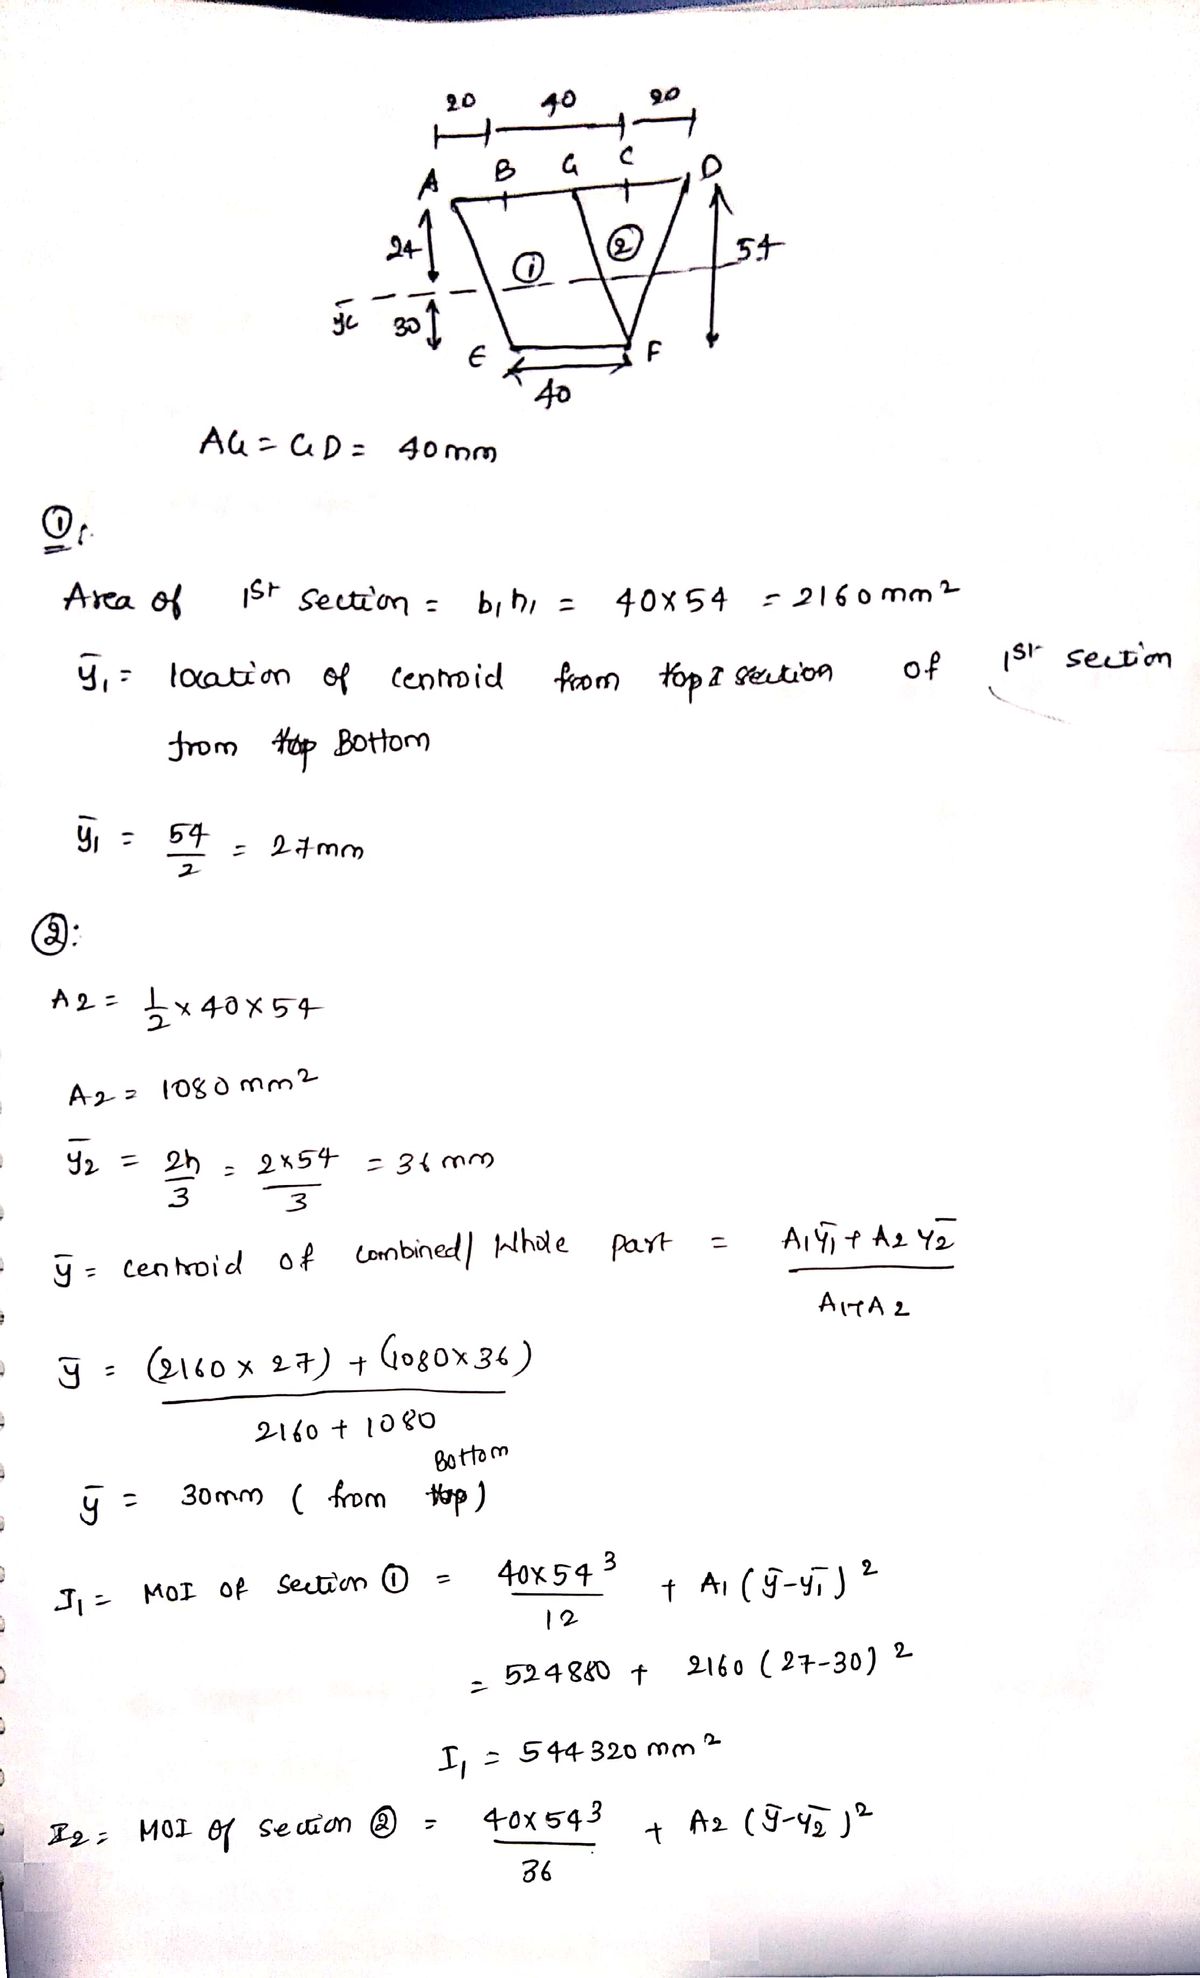 20 40 20
A B G C D
24 ① ② 54
ȳc 30
E F
40
AG = GD = 40mm
①:
Area of 1st section = b1h1 = 40×54 = 2160mm²
ȳ1 = location of centroid from top section of 1st section
from top Bottom
ȳ1 = 54/2 = 27mm
②:
A2 = 1/2 × 40×54
A2 = 1080mm²
ȳ2 = 2h/3 = 2×54/3 = 36mm
ȳ = centroid of combined/Whole part = A1ȳ1 + A2ȳ2 / A1+A2
ȳ = (2160 × 27) + (1080×36) / 2160 + 1080
Bottom
ȳ = 30mm ( from top)
I1 = MOI of section ① = 40×54³/12 + A1 (ȳ-ȳ1)²
= 524880 + 2160 (27-30)²
I1 = 544320mm²
I2 = MOI of section ② = 40×54³/36 + A2 (ȳ-ȳ2)²